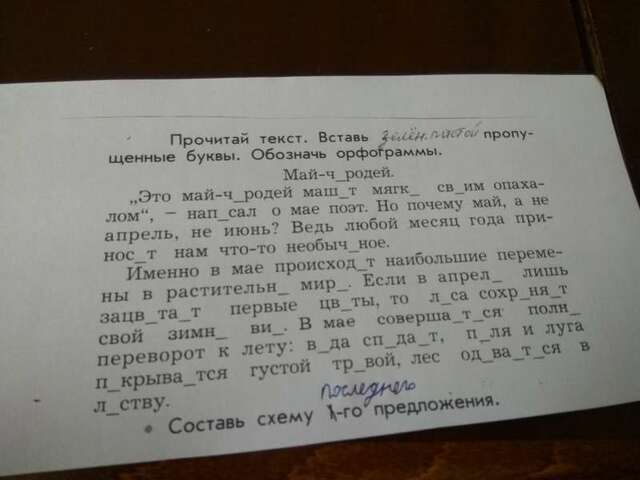 Прочитай текст. Вставь зелён.пастой пропу-
щенные буквы. Обозначь орфограммы.
Май-ч_родей.
„Это май-ч_родей маш_т мягк_ св_им опаха-
лом“, – нап_сал о мае поэт. Но почему май, а не
апрель, не июнь? Ведь любой месяц года при-
нос_т нам что-то необыч_ное.
Именно в мае происход_т наибольшие переме-
ны в растительн_ мир_. Если в апрел_ лишь
зацв_та_т первые цв_ты, то л_са сохр_ня_т
свой зимн_ ви_. В мае соверша_т_ся полн_
переворот к лету: в_да сп_да_т, п_ля и луга
п_крыва_тся густой тр_вой, лес од_ва_т_ся в
л_ству.
последнего
• Составь схему 1-го предложения.